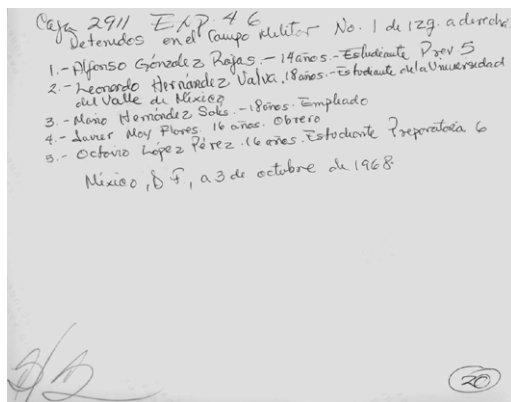 Caja 2911 EXP. 46
Detenidos en el Campo Militar No. 1 de izq. a derecha.
1.- Alfonso Gónzalez Rojas.- 14 años.- Estudiante Prev 5
2.- Leonardo Hernández Valva, 18 años.- Estudiante de la Universidad
del Valle de México
3.- Mario Hernández Solis.- 18 años. Empleado
4.- Javier Moy Flores. 16 años. Obrero
5.- Octavio López Pérez. 16 años. Estudiante Preparatoria 6
México, D F, a 3 de octubre de 1968.
20